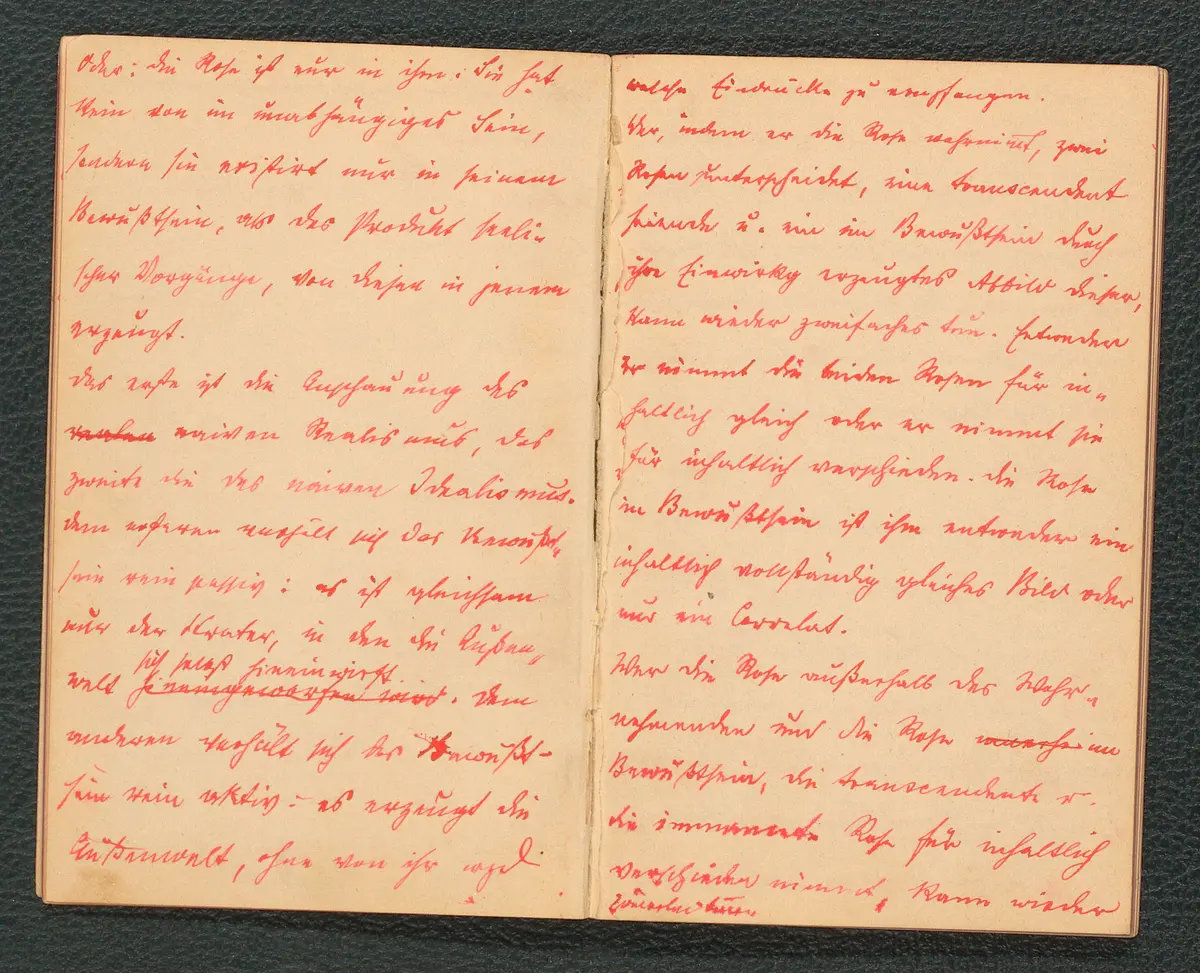 Oder: die Rose ist nur in ihm: Sie hat
kein von im unabhängiges Sein,
sondern sie existirt nur in seinem
Bewußtsein, als das Produkt seeli-
scher Vorgänge, von diesen in jenem
erzeugt.
Das erste ist die Anschauung des
realen naiven Realismus, das
zweite die des naiven Idealismus.
Dem ersteren verhält sich das Bewußt-
sein rein passiv: es ist gleichsam
nur der Krater, in den die Außen-
sich selbst hineinwirft
welt hineingeworfen wird. Dem
anderen verhält sich das Bewußt-
sein rein aktiv: es erzeugt die
Außenwelt, ohne von ihr irgend
welche Eindrücke zu empfangen.
Wer, indem er die Rose wahrnimt, zwei
Rosen unterscheidet, eine transcendent
seiende u. ein im Bewußtsein durch
ihre Einwirkg erzeugtes Abbild dieser,
kann wieder zweifaches tun. Entweder
er nimmt die beiden Rosen für in-
haltlich gleich oder er nimmt sie
für inhaltlich verschieden. Die Rose
im Bewußtsein ist ihm entweder ein
inhaltlich vollständig gleiches Bild oder
nur ein Correlat.
Wer die Rose außerhalb des Wahr-
nehmenden und die Rose im
Bewußtsein, die transcendente u.
die immanente Rose für inhaltlich
verschieden nimmt, kann wieder
zweierlei tun